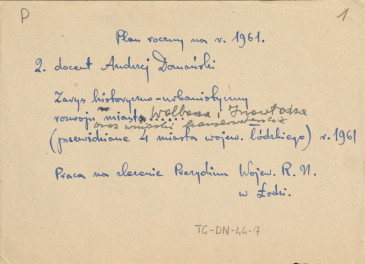 P
1
Plan roczny na r. 1961.
2. docent Andrzej Domański
Zarys historyczno-urbanistyczny
rozwoju miasta Wolborza i Inowłodza
oraz wnioski
(przewidziane 4 miasta wojew. łódzkiego) r. 1961
Praca na zlecenie Prezydium Wojew. R. N.
w Łodzi.
TG-DN-44-7